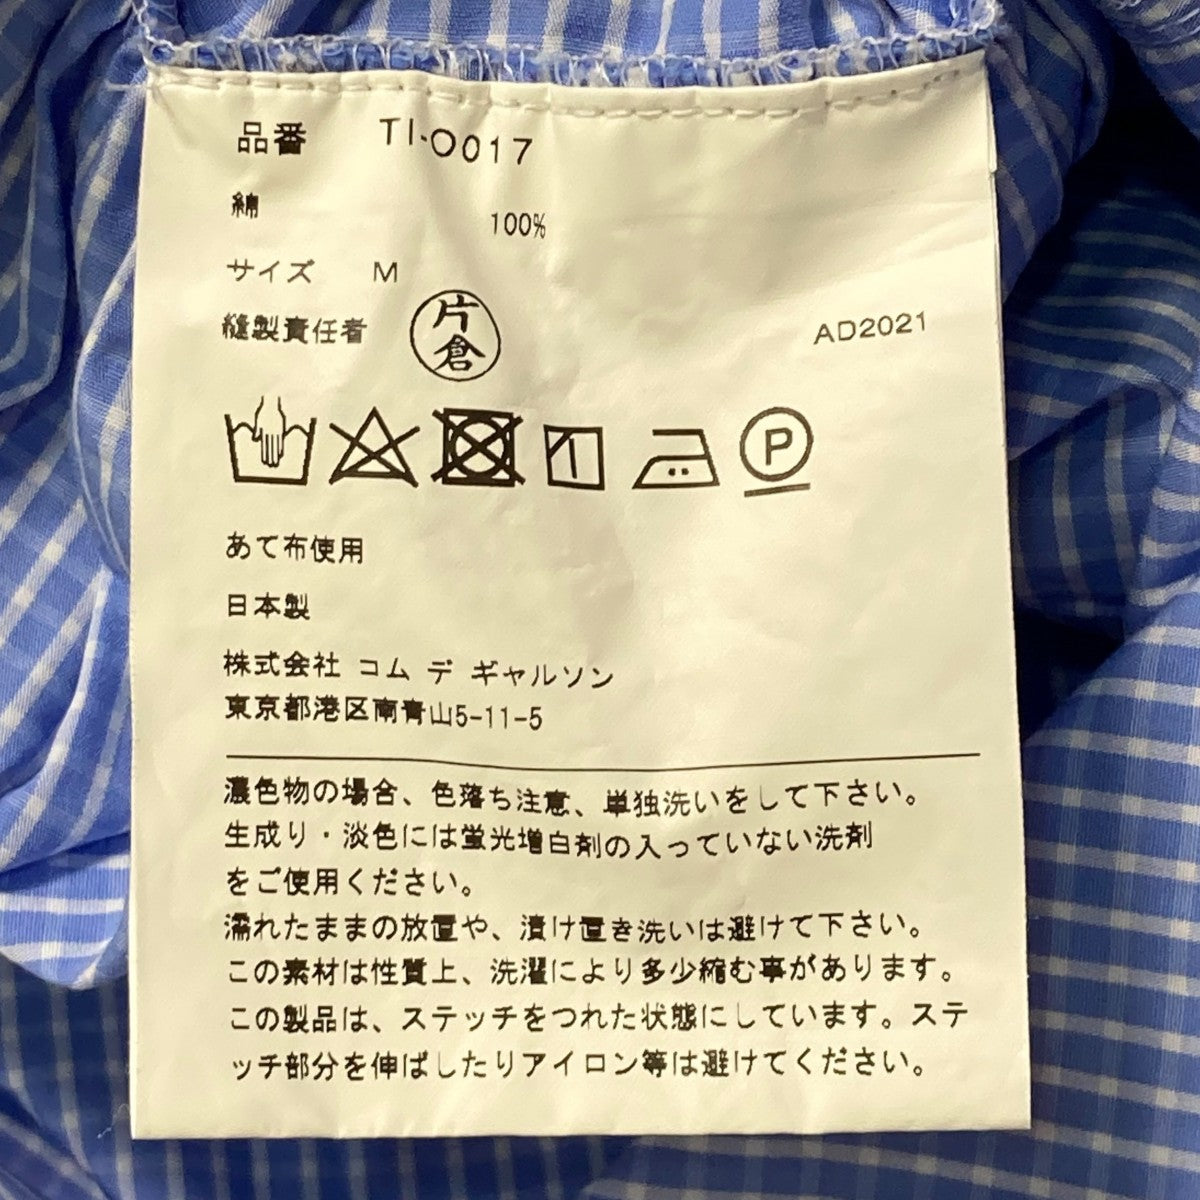 品番 TI-O017
綿 100%
サイズ M
縫製責任者 片倉 AD2021
P
あて布使用
日本製
株式会社 コム デ ギャルソン
東京都港区南青山5-11-5
濃色物の場合、色落ち注意、単独洗いをして下さい。
生成り・淡色には蛍光増白剤の入っていない洗剤
をご使用ください。
濡れたままの放置や、漬け置き洗いは避けて下さい。
この素材は性質上、洗濯により多少縮む事があります。
この製品は、ステッチをつれた状態にしています。ステ
ッチ部分を伸ばしたりアイロン等は避けてください。